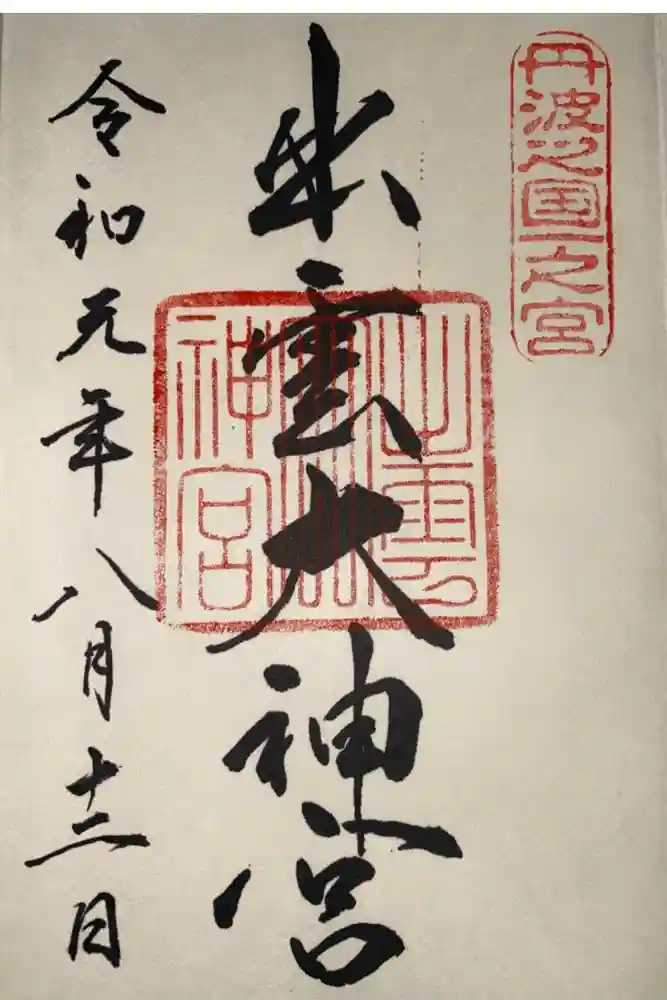 丹波之國一之宮
出雲大神宮
出雲大神宮
令和元年八月十二日